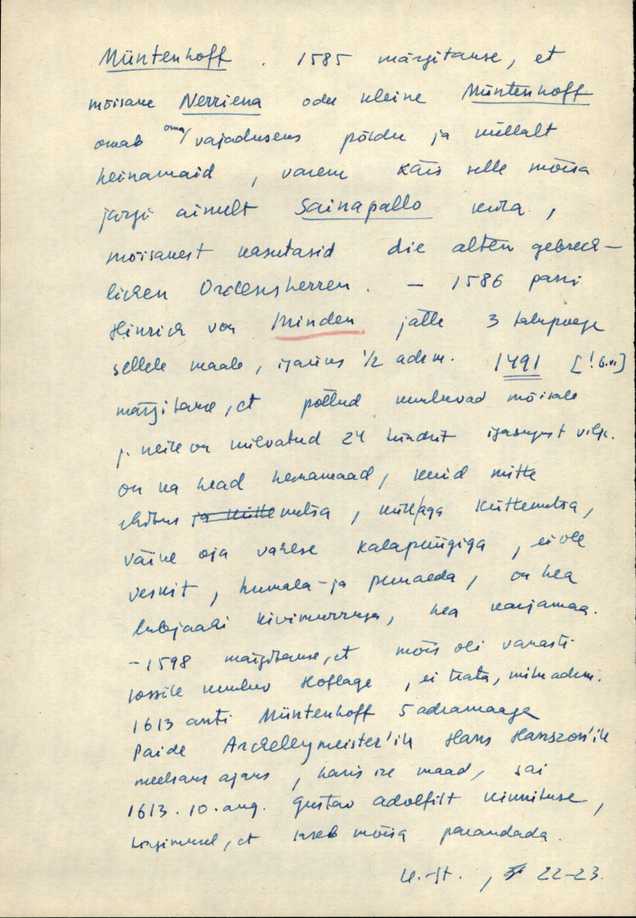 Müntenhoff. 1585 märgitakse, et
mõisake Nerriena oder kleine Müntenhoff
omab oma/vajaduseks põldu ja küllalt
heinamaid, varem käis selle mõisa
järgi ainult Sainapallo küla,
mõisakest kasutasid die alten gebrech-
lichen Ordensherren. – 1586 pani
Hinrich von Minden jälle 3 talupoega
sellele maale, igaüks 1/2 adrm. 1491 [!
märgitakse, et põllud kuuluvad mõisale
j. neile on külvatud 24 tündrit igasugust vilja.
on ka head heinamaad, kuid mitte
ehitus ja kütte metsa, küllaga küttemetsa,
väike oja vähese kalapüügiga, ei ole
veskit, humala- ja puuaeda, on hea
lubjaahi kivimurruga, hea karjamaa.
– 1598 märgitakse, et mõis oli vanasti
lossile kuuluv Hoflage, ei teata, mitu adrm.
1613 anti Müntenhoff 5 adramaaga
Paide Archelleymeister'ile Hans Hansson'ile
meelsans ajaks, haris ise maad, sai
1613. 10. aug. Gustav Adolfilt kinnituse,
tingimusel, et laseb mõisa parandada.
22-23.